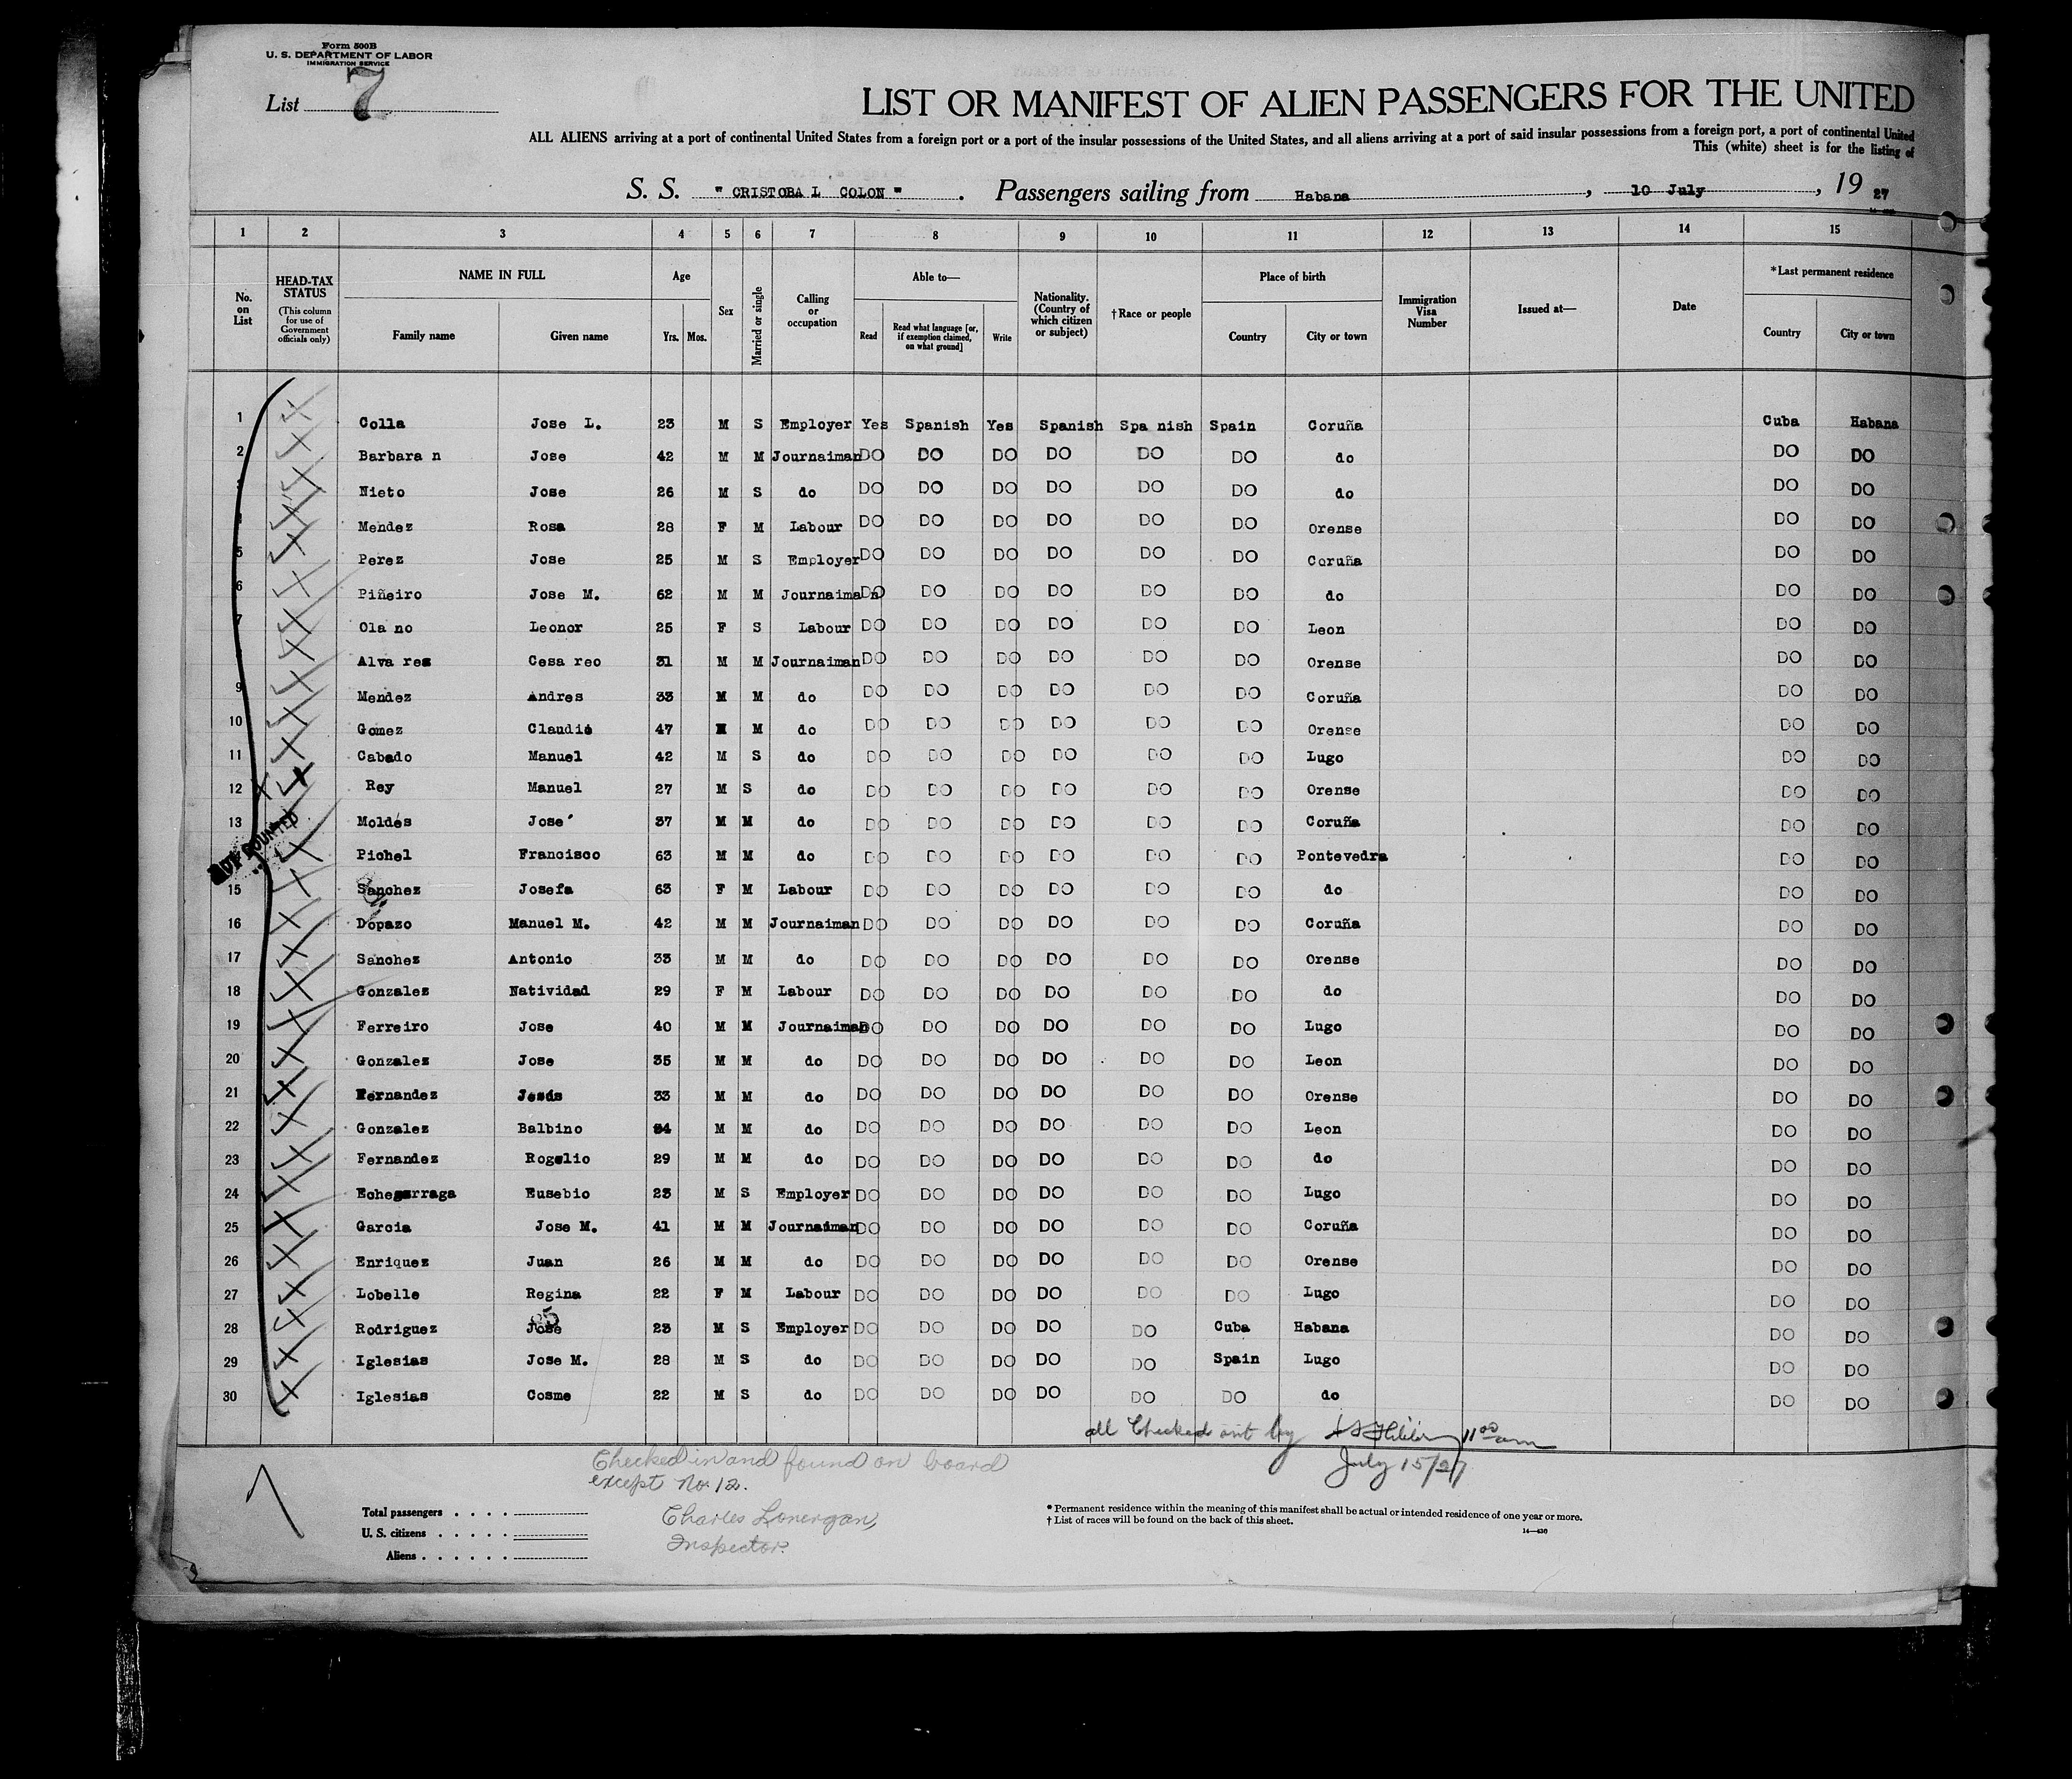 Form 500B
U. S. DEPARTMENT OF LABOR
IMMIGRATION SERVICE
List 7
LIST OR MANIFEST OF ALIEN PASSENGERS FOR THE UNITED
ALL ALIENS arriving at a port of continental United States from a foreign port or a port of the insular possessions of the United States, and all aliens arriving at a port of said insular possessions from a foreign port, a port of continental United
This (white) sheet is for the listing of
S. S. " CRISTOBA L COLON " . Passengers sailing from Habana , 10 July , 19 27
1 2 3 4 5 6 7 8 9 10 11 12 13 14 15
No. on List HEAD-TAX STATUS (This column for use of Government officials only) NAME IN FULL Family name Given name Age Yrs. Mos. Sex Married or single Calling or occupation Able to— Read Read what language [or, if exemption claimed, on what ground] Write Nationality. (Country of which citizen or subject) †Race or people Place of birth Country City or town Immigration Visa Number Issued at— Date *Last permanent residence Country City or town
1 Colla Jose L. 23 M S Employer Yes Spanish Yes Spanish Spa nish Spain Coruña Cuba Habana
2 Barbara n Jose 42 M M Journaiman DO DO DO DO DO DO do DO DO
Nieto Jose 26 M S do DO DO DO DO DO DO do DO DO
Mendez Rosa 28 F M Labour DO DO DO DO DO DO Orense DO DO
5 Perez Jose 25 M S Employer DO DO DO DO DO DO Coruña DO DO
6 Piñeiro Jose M. 62 M M Journaiman DO DO DO DO DO DO do DO DO
7 Ola no Leonor 25 F S Labour DO DO DO DO DO DO Leon DO DO
Alva rez Cesa reo 31 M M Journaiman DO DO DO DO DO DO Orense DO DO
9 Mendez Andres 33 M M do DO DO DO DO DO DO Coruña DO DO
10 Gomez Claudio 47 M M do DO DO DO DO DO DO Orense DO DO
11 Cabado Manuel 42 M S do DO DO DO DO DO DO Lugo DO DO
12 Rey Manuel 27 M S do DO DO DO DO DO DO Orense DO DO
13 Moldés José 37 M M do DO DO DO DO DO DO Coruña DO DO
Pichel Francisco 63 M M do DO DO DO DO DO DO Pontevedra DO DO
15 Sanchez Josefa 63 F M Labour DO DO DO DO DO DO do DO DO
16 Dopazo Manuel M. 42 M M Journaiman DO DO DO DO DO DO Coruña DO DO
17 Sanchez Antonio 33 M M do DO DO DO DO DO DO Orense DO DO
18 Gonzalez Natividad 29 F M Labour DO DO DO DO DO DO do DO DO
19 Ferreiro Jose 40 M M Journaiman DO DO DO DO DO DO Lugo DO DO
20 Gonzalez Jose 35 M M do DO DO DO DO DO DO Leon DO DO
21 Fernandez Jesús 33 M M do DO DO DO DO DO DO Orense DO DO
22 Gonzalez Balbino 34 M M do DO DO DO DO DO DO Leon DO DO
23 Fernandez Rogelio 29 M M do DO DO DO DO DO DO do DO DO
24 Echegarraga Eusebio 23 M S Employer DO DO DO DO DO DO Lugo DO DO
25 Garcia Jose M. 41 M M Journaiman DO DO DO DO DO DO Coruña DO DO
26 Enriquez Juan 26 M M do DO DO DO DO DO DO Orense DO DO
27 Lobelle Regina 22 F M Labour DO DO DO DO DO DO Lugo DO DO
28 Rodriguez Jose 23 M S Employer DO DO DO DO DO Cuba Habana DO DO
29 Iglesias Jose M. 28 M S do DO DO DO DO DO Spain Lugo DO DO
30 Iglesias Cosme 22 M S do DO DO DO DO DO DO do DO DO
all Checked out by 11 00 am
July 15/27
Checked in and found on board
except No. 12.
Charles Lonergan,
Inspector.
Total passengers
U. S. citizens
Aliens
* Permanent residence within the meaning of this manifest shall be actual or intended residence of one year or more.
† List of races will be found on the back of this sheet.
14—430